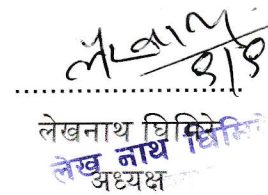 लेखनाथ
लेखनाथ घिमिरे
लेख नाथ घिमिरे
अध्यक्ष